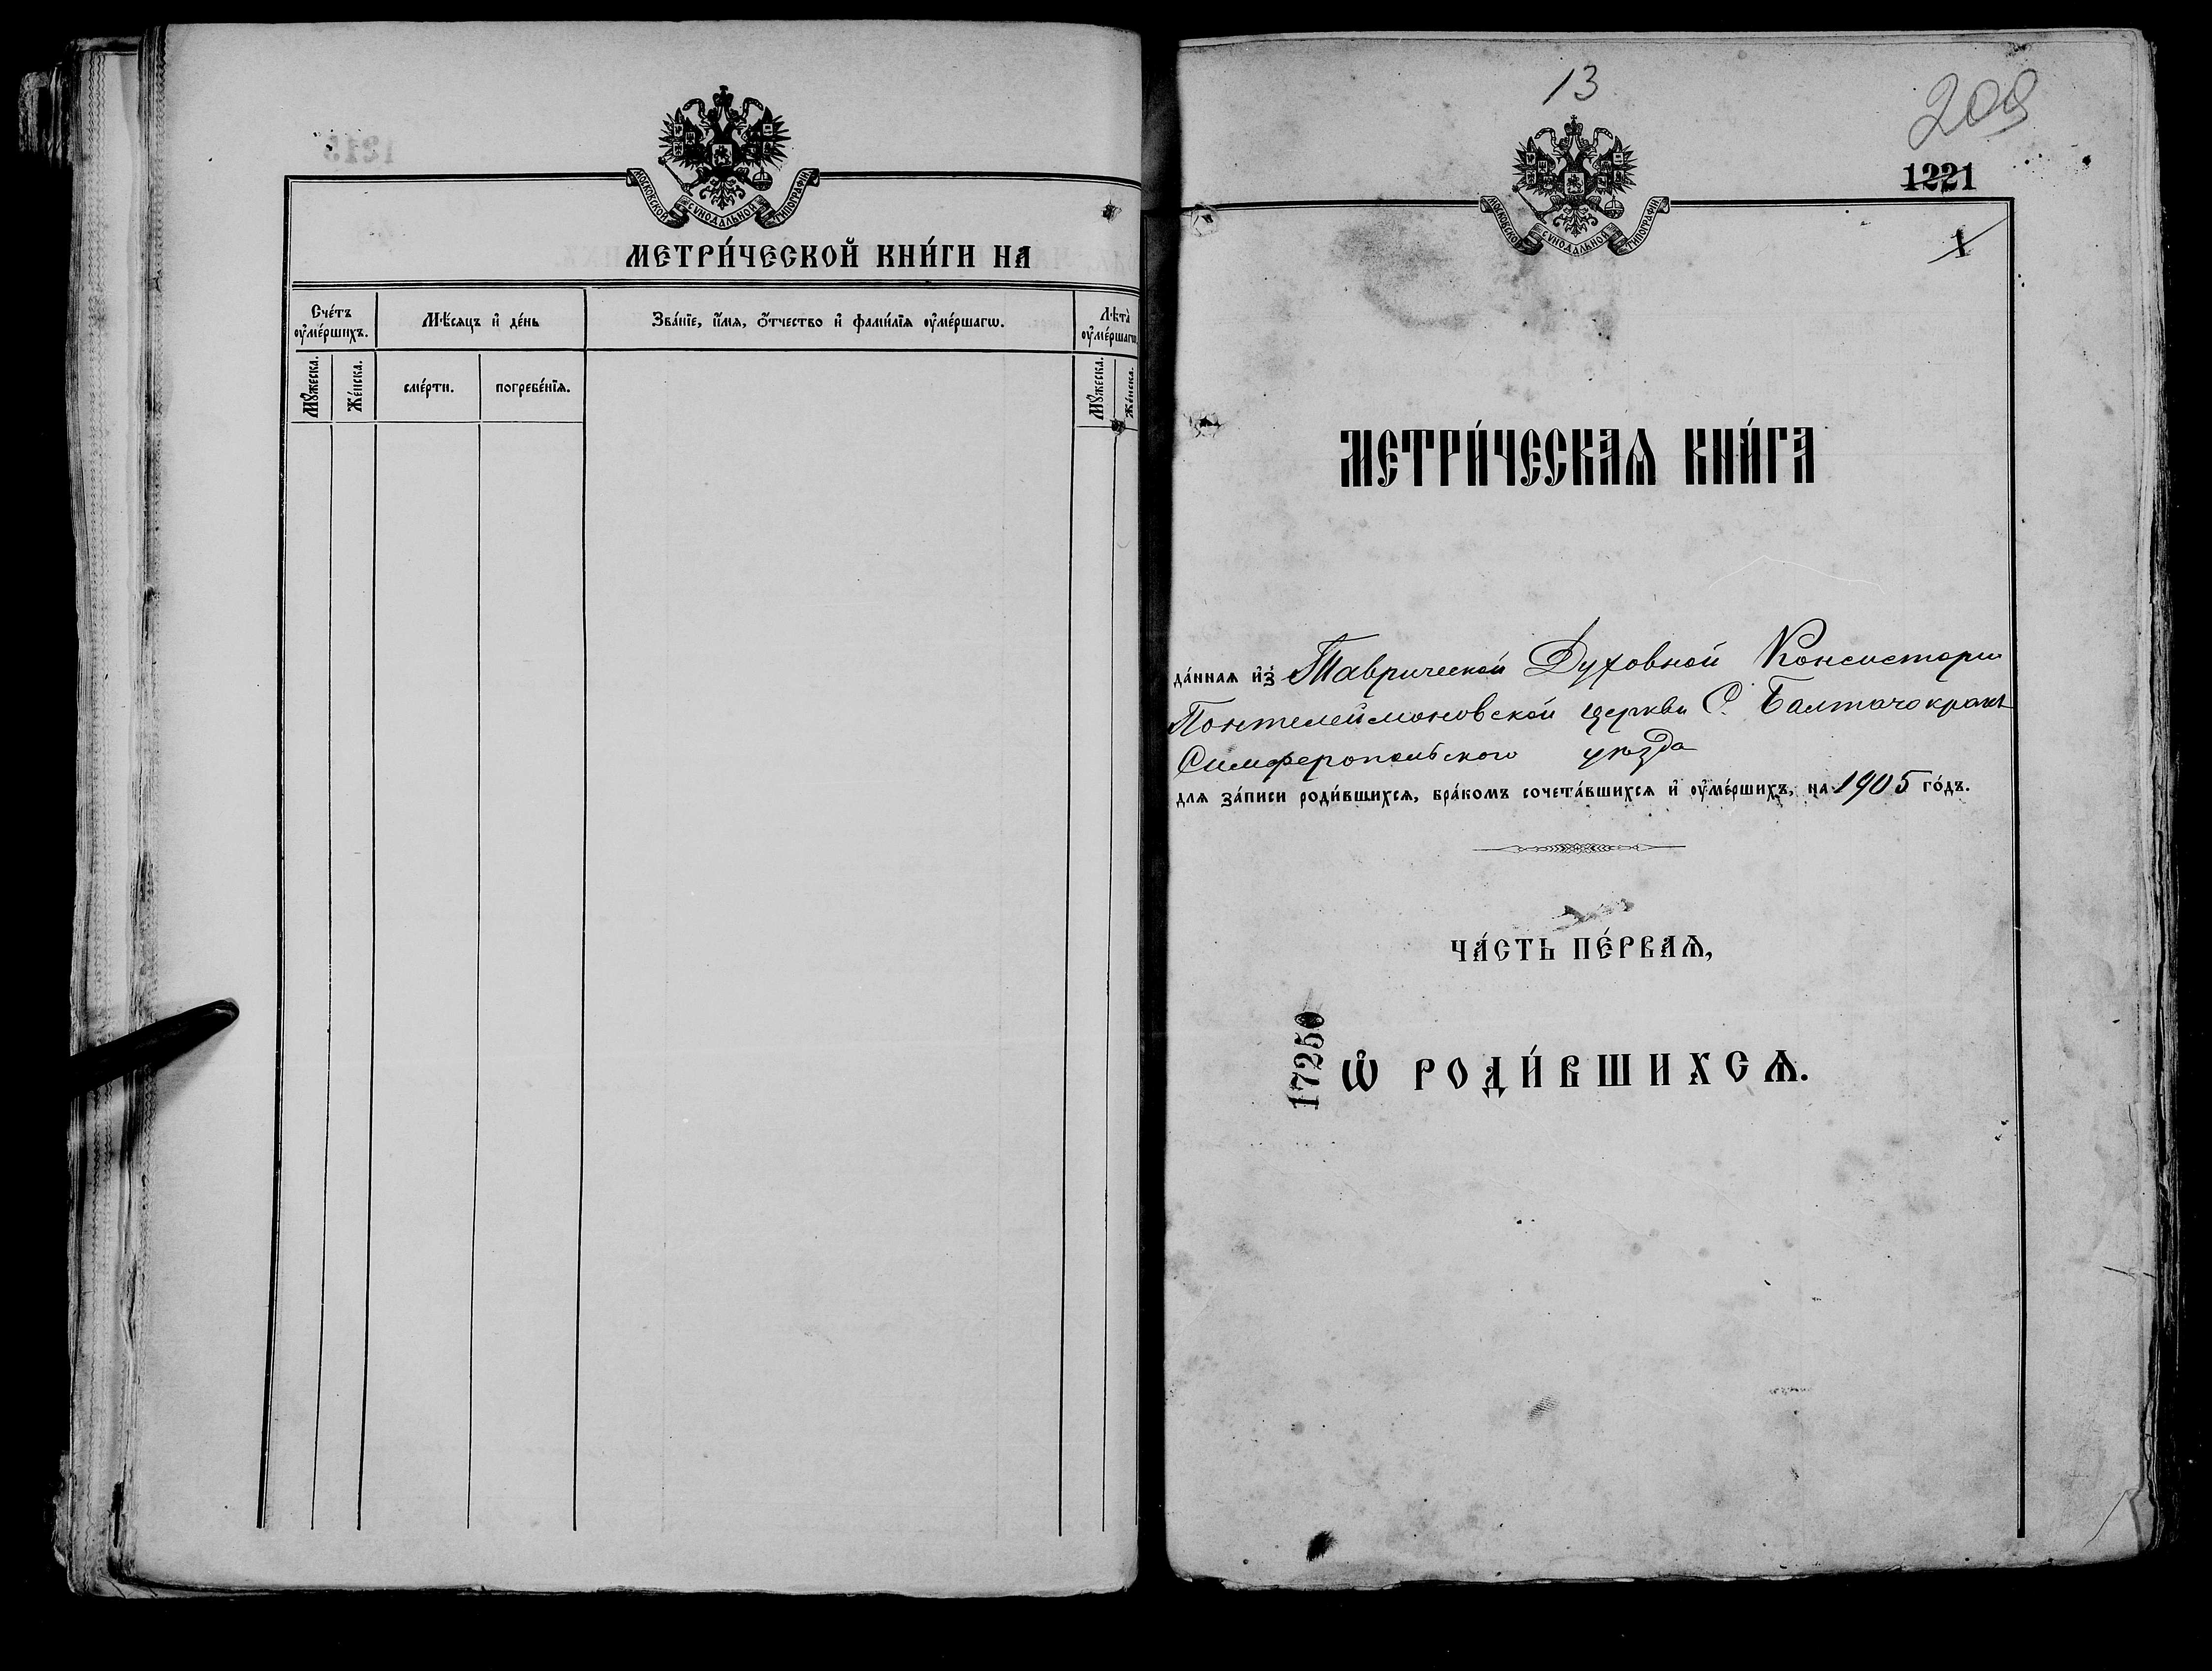 МОСКОВСКОЙ СѴНОДАЛЬНОЙ ТИПОГРАФІИ
МЕТРИ́ЧЕСКОЙ КНИ́ГИ НА
Сче́тъ ᲂу҆ме́ршихъ.
Мѣ́сяцъ и҆ де́нь
Зва́нїе, и҆́мѧ, ѻ҆́тчество и҆ фами́лїѧ ᲂу҆ме́ршагѡ.
Лѣ́та ᲂу҆ме́ршагѡ
Мꙋ́жеска.
Же́нска.
сме́рти.
погребе́нїѧ.
Мꙋ́жеска.
Же́нска.
13
209
1221
1
МОСКОВСКОЙ СѴНОДАЛЬНОЙ ТИПОГРАФІИ
МЕТРИ́ЧЕСКАѦ КНИ́ГА
да́ннаѧ и҆з̾ Таврической Духовной Консистории
Понтелеймоновской церкви С. Балтачокракъ
Симферопольского уѣзда
длѧ за́писи роди́вшихсѧ, бра́комъ сочета́вшихсѧ и҆ ᲂу҆ме́ршихъ, на 1905 го́дъ.
ЧА́СТЬ ПЕ́РВАѦ,
17250
Ѽ РОДИ́ВШИХСѦ.